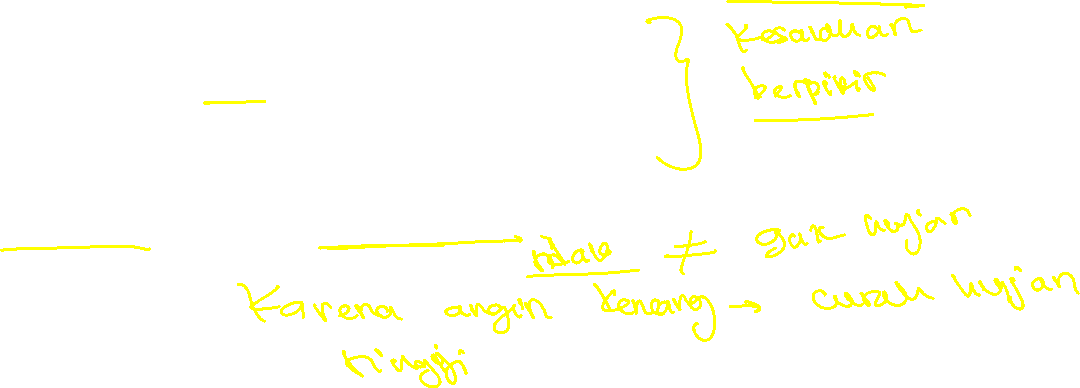 Kesalahan
berpikir
tidak ≠ gak hujan
Karena angin kencang → curah hujan
tinggi